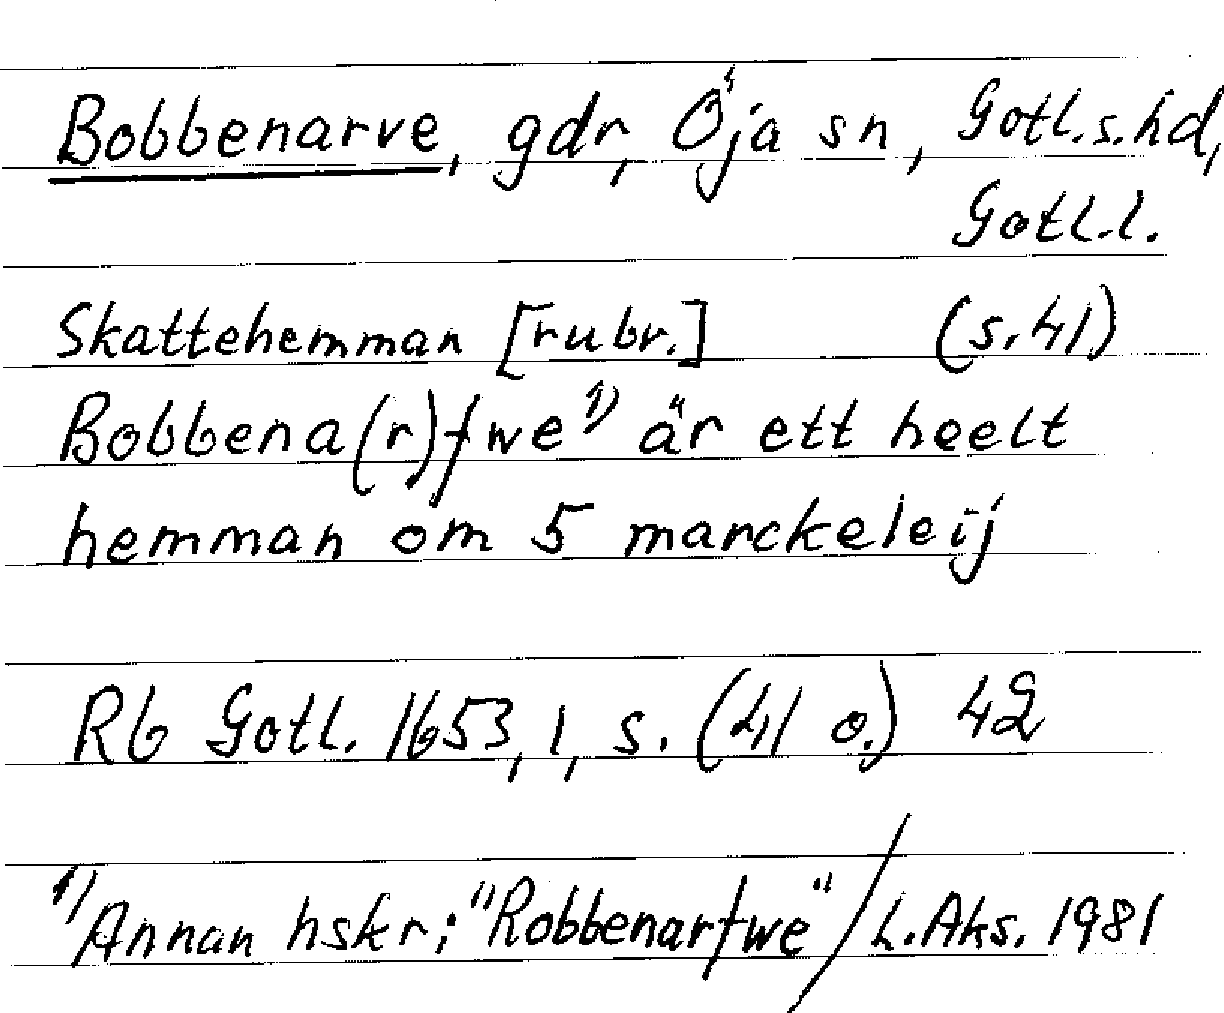 Bobbenarve, gdr, Öja sn, Gotl.s.hd,
Gotl.l.
Skattehemman [rubr.] (s.41)
Bobbena(r)fwe¹⁾ är ett heelt
hemman om 5 marckeleij
Rb Gotl. 1653, 1, s. (41 o.) 42
¹⁾Annan hskr; "Robbenarfwe"/L.Aks. 1981